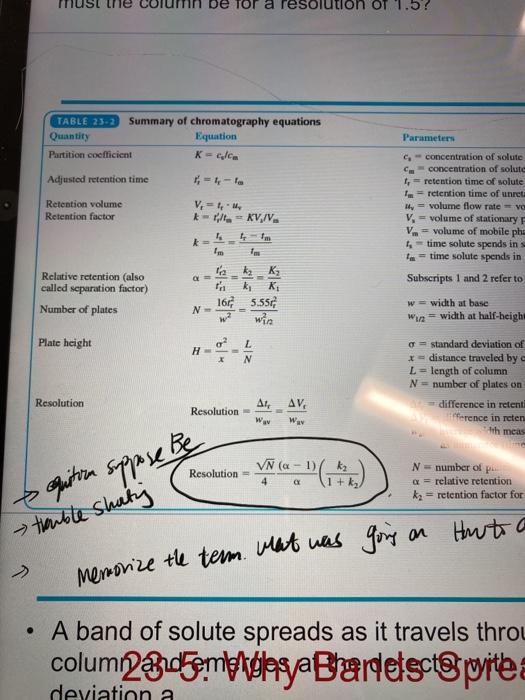 must the column be for a resolution of 1.5?
TABLE 23-2 Summary of chromatography equations
Quantity Equation Parameters
Partition coefficient K = cₛ/cₘ cₛ = concentration of solute
cₘ = concentration of solute
Adjusted retention time t′ᵣ = tᵣ − tₘ tᵣ = retention time of solute
tₘ = retention time of unreta
Retention volume Vᵣ = tᵣ · uᵥ uᵥ = volume flow rate = vo
Retention factor k = t′ᵣ/tₘ = KVₛ/Vₘ Vₛ = volume of stationary p
Vₘ = volume of mobile pha
k = tₛ/tₘ = (tᵣ − tₘ)/tₘ tₛ = time solute spends in s
tₘ = time solute spends in
Relative retention (also α = t′ᵣ₂/t′ᵣ₁ = k₂/k₁ = K₂/K₁ Subscripts 1 and 2 refer to
called separation factor)
Number of plates N = 16tᵣ²/w² = 5.55tᵣ²/w²₁/₂ w = width at base
w₁/₂ = width at half-height
Plate height H = σ²/x = L/N σ = standard deviation of
x = distance traveled by c
L = length of column
N = number of plates on
Resolution Resolution = Δtᵣ/wₐᵥ = ΔVᵣ/wₐᵥ = difference in retenti
ference in reten
th meas
Resolution = √N/4 (α − 1)/α (k₂/(1 + k₂)) N = number of p
α = relative retention
k₂ = retention factor for
→ suppose Be
→ trouble
→ Memorize the term. what was going on
• A band of solute spreads as it travels throu
column and emerges at the detector with
23-5: Why Bands Sprea
deviation